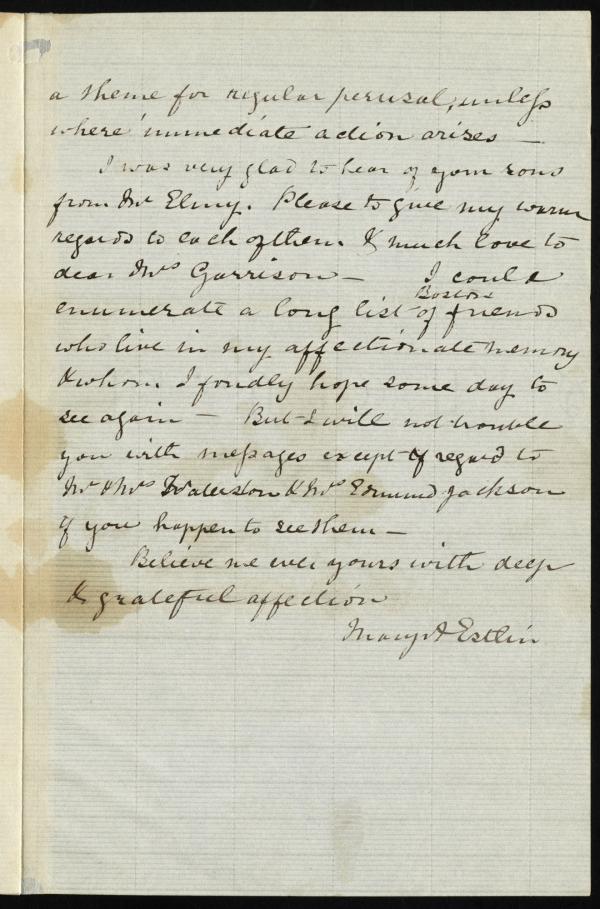 a theme for regular perusal, unless
where immediate action arises —
I was very glad to hear of your sons
from Mr Elmy. Please to give my warm
regards to each of them & much love to
dear Mrs Garrison — I could
enumerate a long list of Boston friends
who live in my affectionate memory
& whom I fondly hope some day to
see again — But I will not trouble
you with messages except of regard to
Mr & Mrs Waterston & Mr Edmund Jackson
if you happen to see them —
Believe me ever yours with deep
& grateful affection
Mary A Estlin